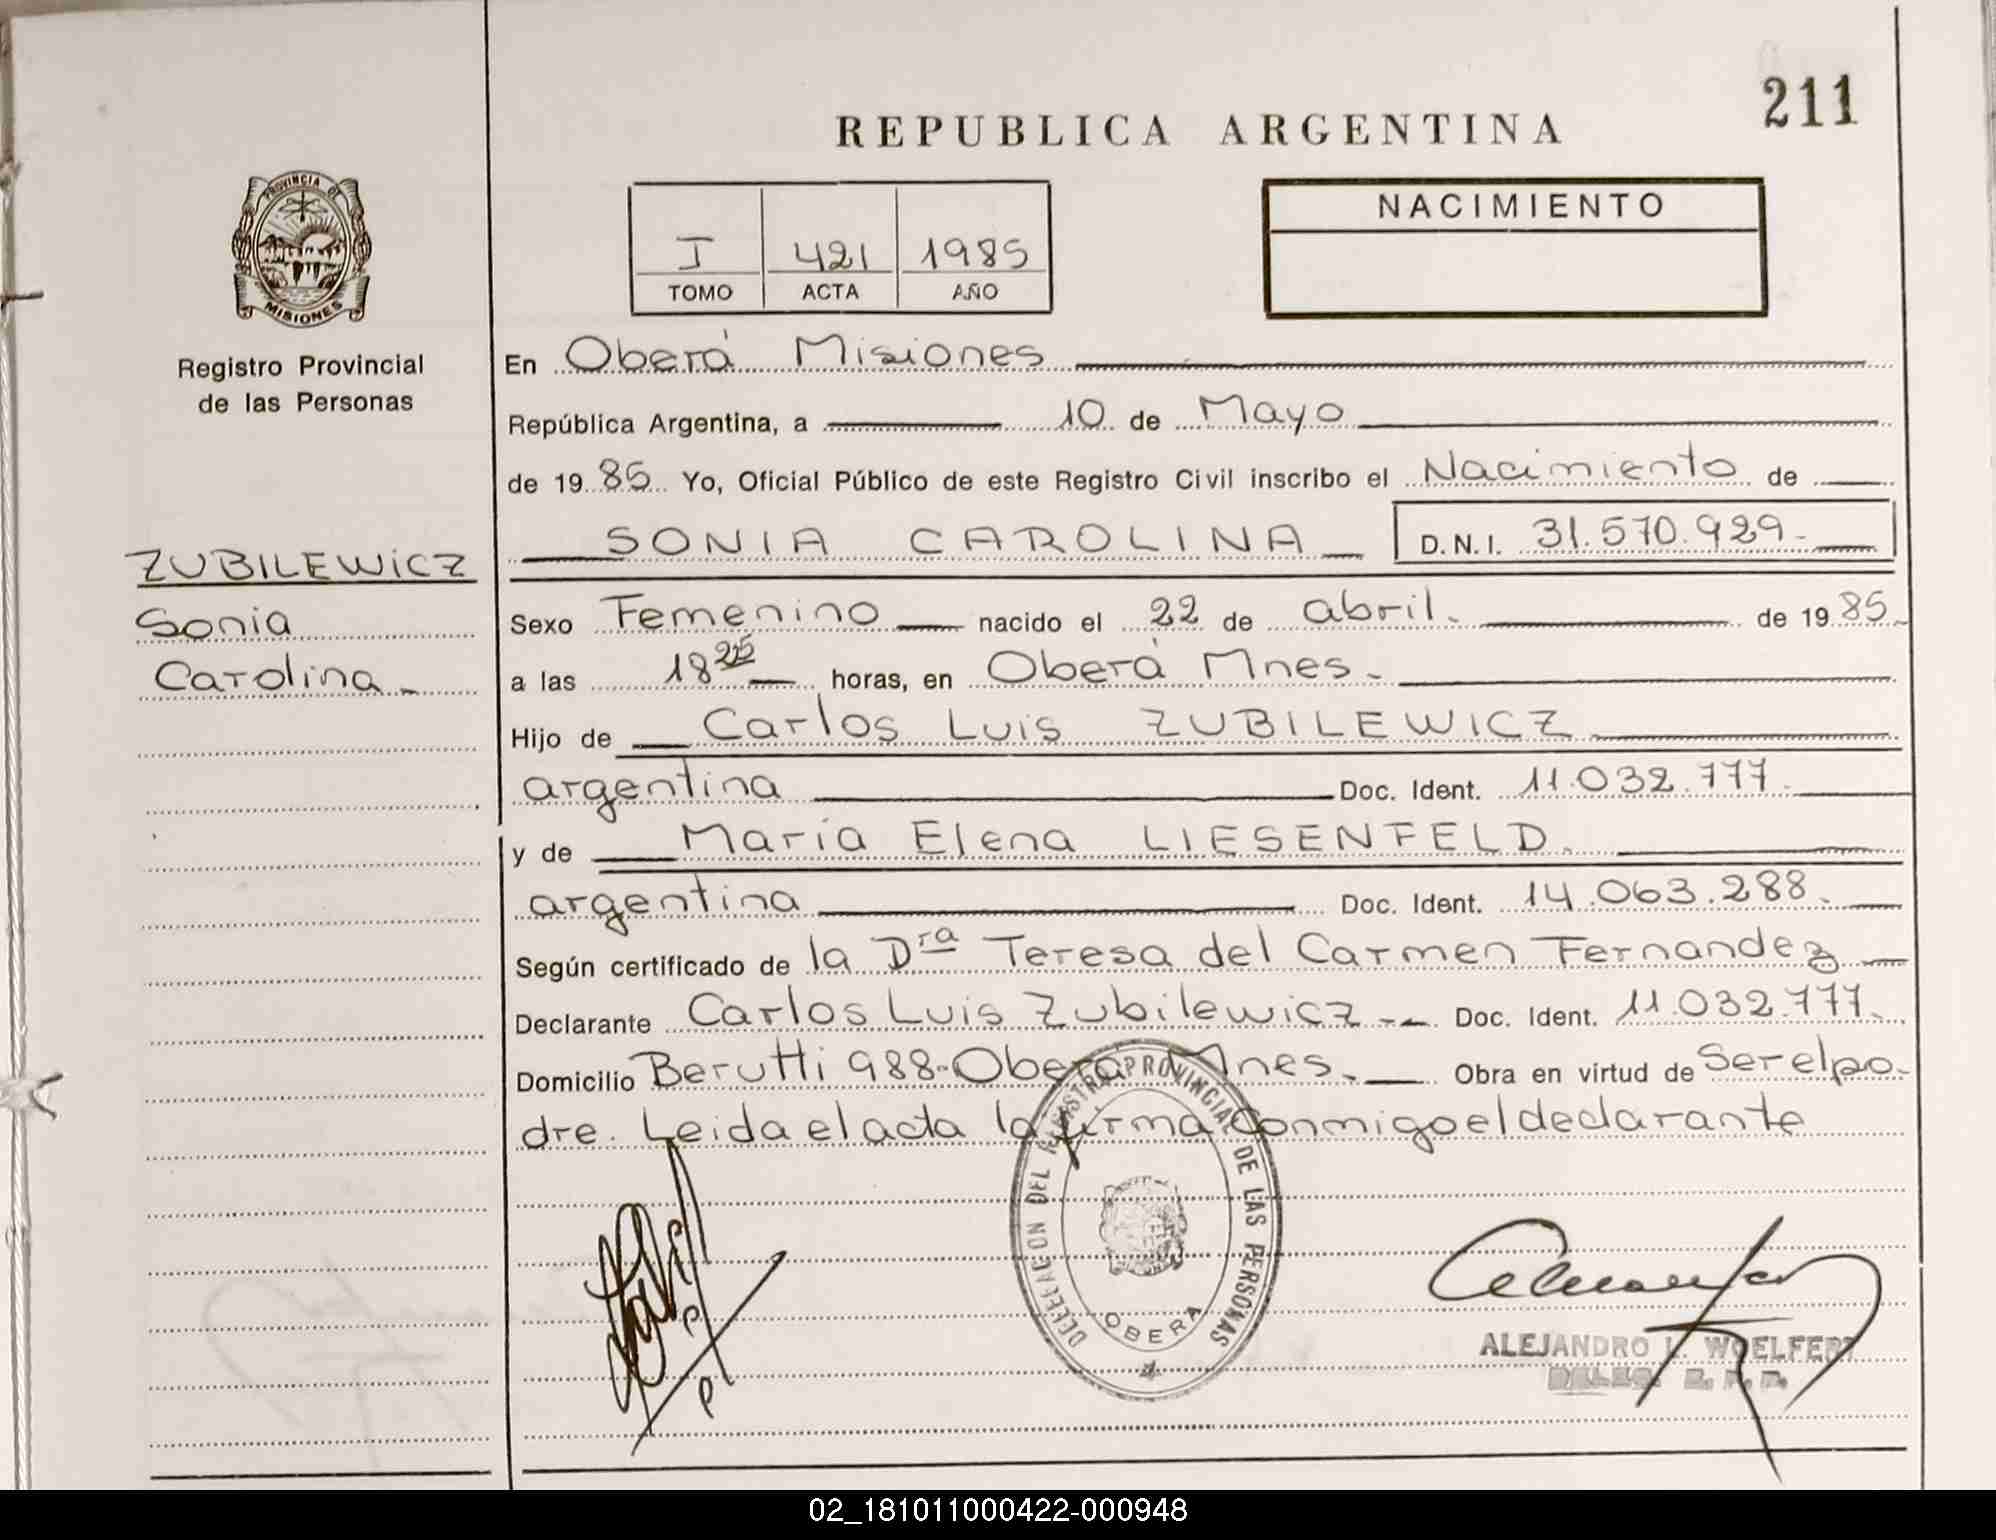 211
REPUBLICA ARGENTINA
PROVINCIA DE
MISIONES
Registro Provincial
de las Personas
I 421 1985
TOMO ACTA AÑO
NACIMIENTO
En Oberá Misiones
República Argentina, a 10 de Mayo
de 19 85 Yo, Oficial Público de este Registro Civil inscribo el Nacimiento de
SONIA CAROLINA D.N.I. 31.570.929-
ZUBILEWICZ
Sonia
Carolina-
Sexo Femenino nacido el 22 de abril. de 19 85
a las 18 horas, en Oberá Mnes.
Hijo de Carlos Luis ZUBILEWICZ
argentina Doc. Ident. 11.032.777.
y de María Elena LIESENFELD.
argentina Doc. Ident. 14.063.288.
Según certificado de la Dra Teresa del Carmen Fernandez
Declarante Carlos Luis Zubilewicz-- Doc. Ident. 11.032.777.
Domicilio Berutti 988-Oberá Mnes. Obra en virtud de Ser el pa-
dre. Leida el acta la firma conmigo el declarante
DELEGACION DEL REGISTRO PROVINCIAL DE LAS PERSONAS
OBERA
ALEJANDRO L. WOELFERT
02_181011000422-000948